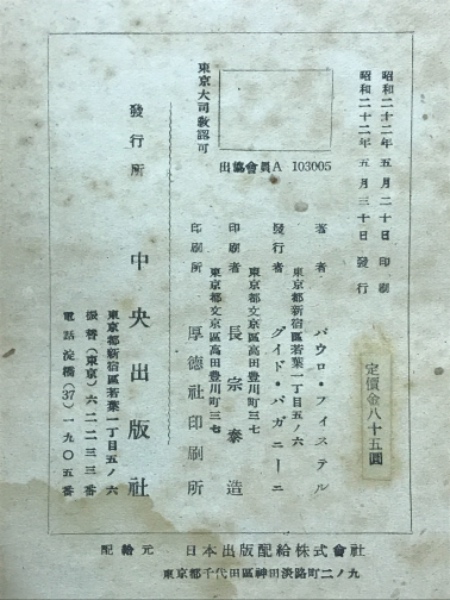 昭和二十二年五月二十日 印刷
昭和二十二年五月三十日 發行
定價金八十五圓
出協會員A 103005
東京大司敎認可
著者 パウロ・フイステル
東京都新宿區若葉一丁目五ノ六
發行者 グイド・パガニーニ
東京都文京區高田豊川町三七
印刷者 長宗泰造
東京都文京區高田豊川町三七
印刷所 厚德社印刷所
發行所 中央出版社
東京都新宿區若葉一丁目五ノ六
振替(東京)六二二三三番
電話淀橋(37)一九〇五番
配給元 日本出版配給株式會社
東京都千代田區神田淡路町二ノ九